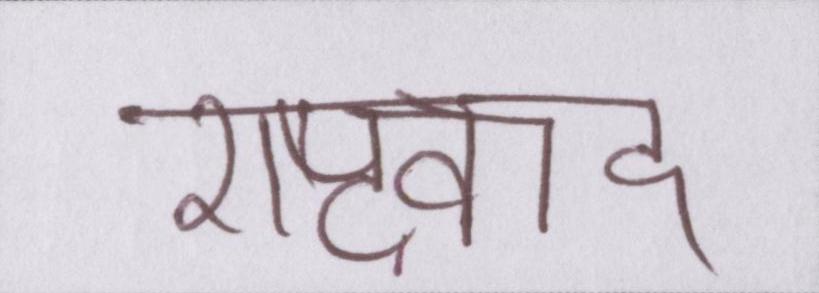 राष्ट्रवाद